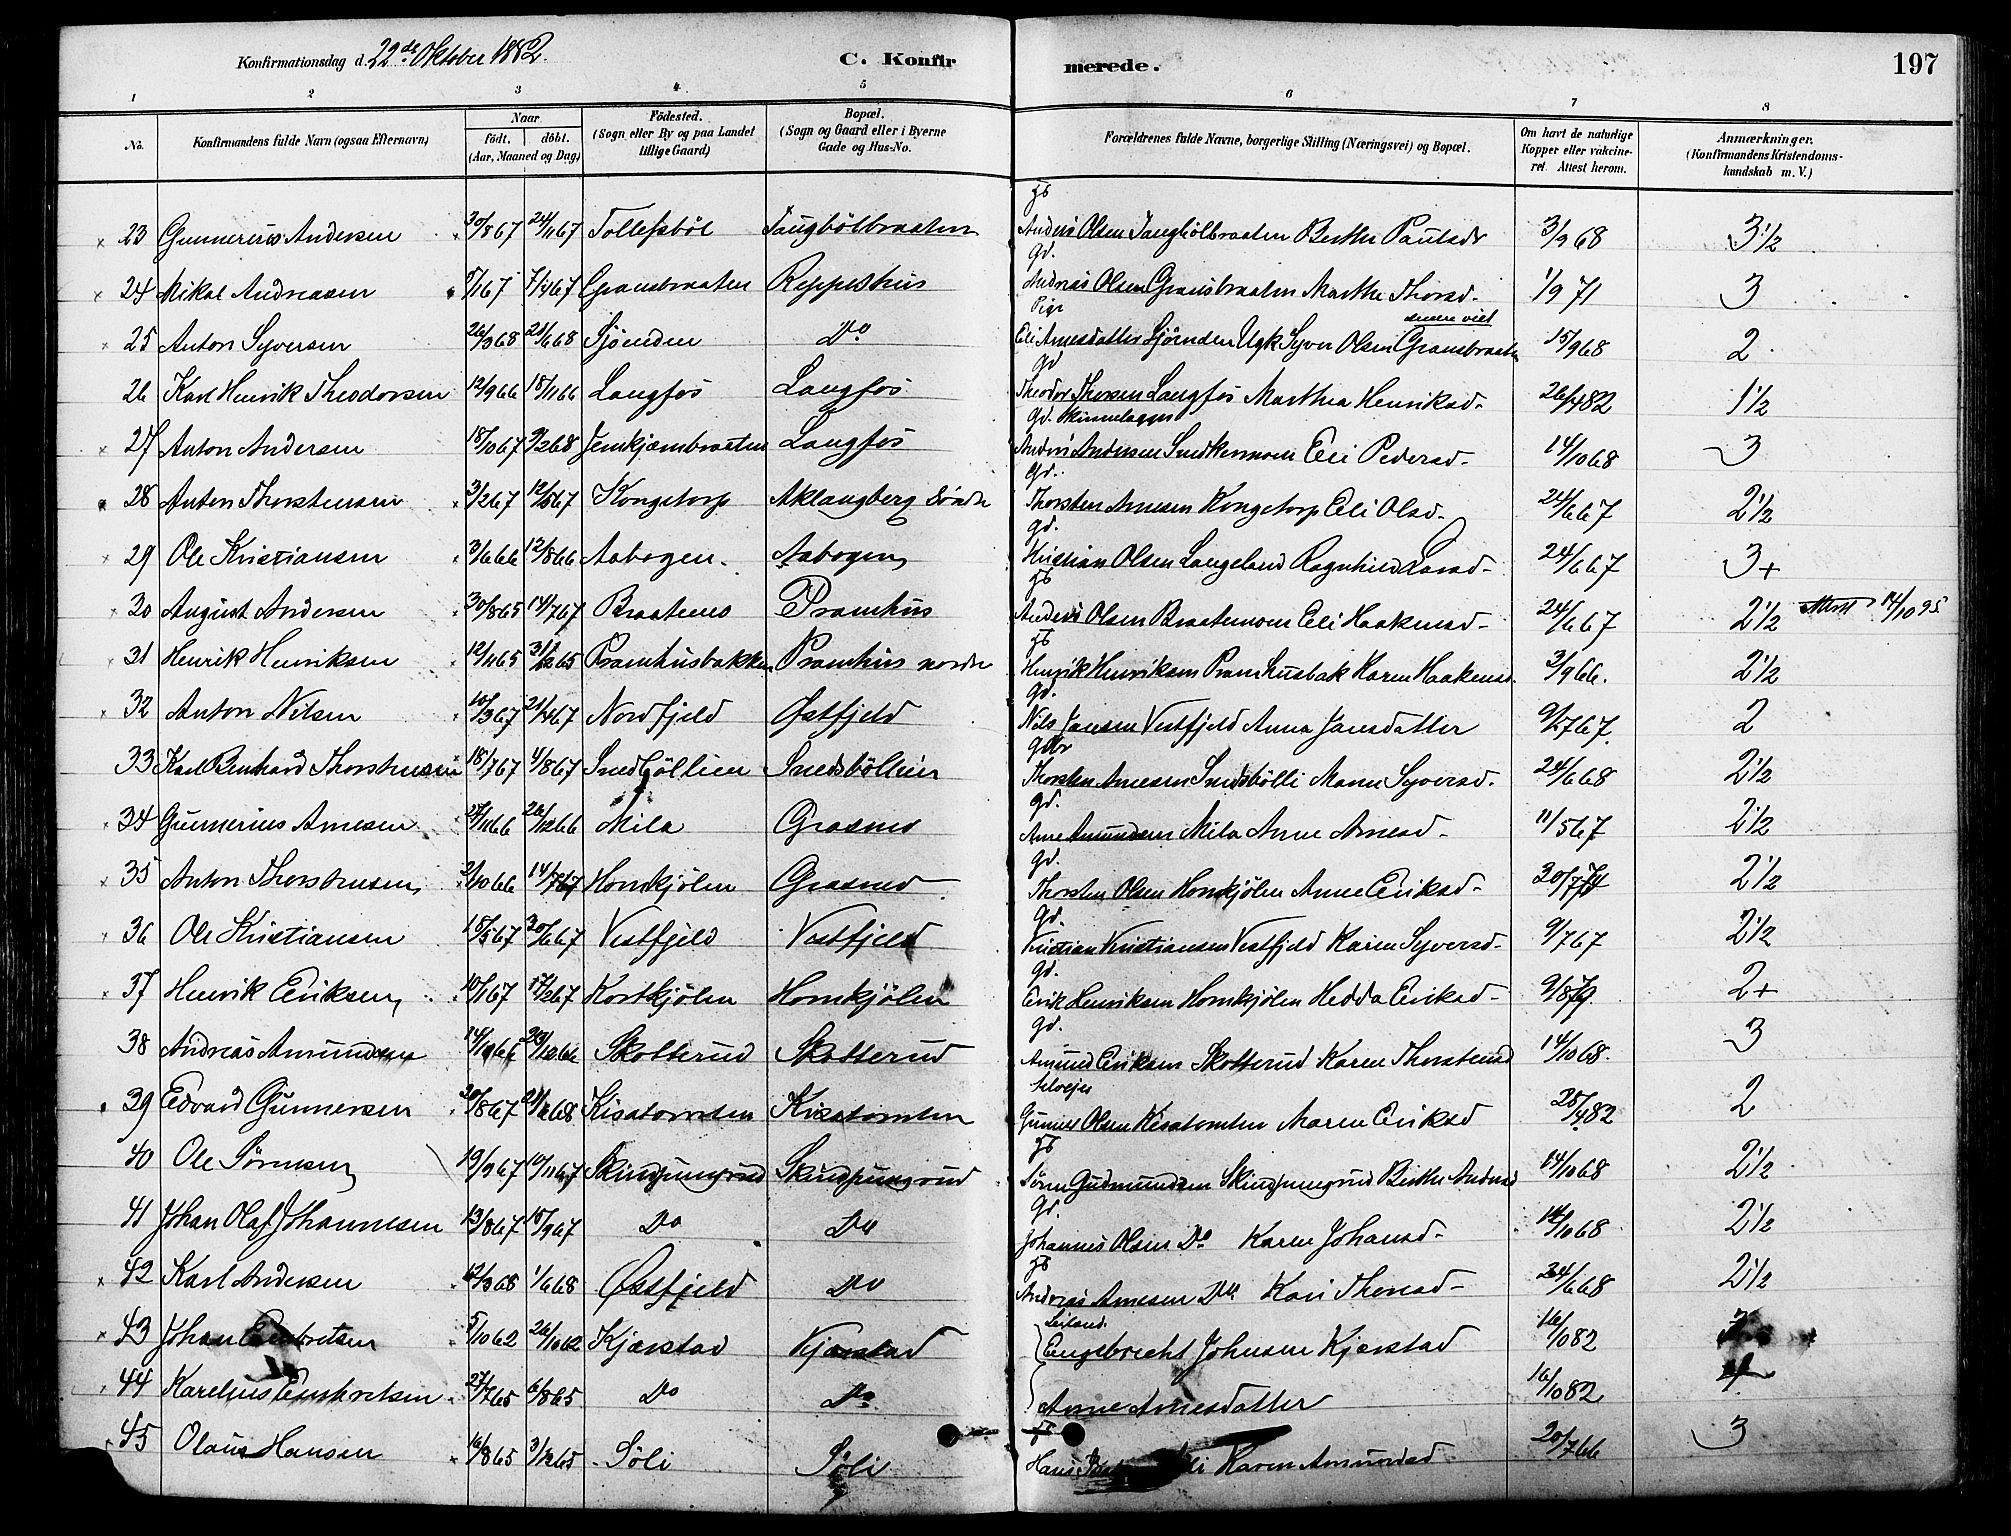 Konfirmationsdag d. 22de Oktober 1882.
C. Konfirmerede.
197
1 2 3 4 5 6 7 8
No.
Konfirmandens fulde Navn (ogsaa Efternavn)
Naar
født. døbt.
(Aar, Maaned og Dag)
Födested.
(Sogn eller By og paa Landet tillige Gaard)
Bopæl.
(Sogn og Gaard eller i Byerne Gade og Hus-No.
Forældrenes fulde Navne, borgerlige Stilling (Næringsvei) og Bopæl.
Om havt de naturlige Kopper eller vakcineret. Attest herom.
Anmærkninger.
(Konfirmandens Kristendomskundskab m. V.)
23 Gunnerius Andersen 30/8 67 24/11 67 Tollefsböl Taugbölbraaten Anders Olsen Taugbölbraaten Berthe Paulsdr 3/9 68 3 1/2
24 Mikal Andreasen 5/1 67 7/4 67 Gransbraaten Reppeshus gd. Andreas Olsen Gransbraaten Marthe Thorsd. 1/9 71 3
25 Anton Syversen 26/3 68 21/6 68 Sjöenden Do Pige Eli Arnesdatter Sjöenden Ugk Syver Olsen Gransbraaten 15/9 68 2
26 Karl Henrik Theodorsen 12/9 66 18/11 66 Langfos Langfos gd Theodor Thorsen Langfos Marthea Henriksd. 26/4 82 1 1/2
27 Anton Andersen 18/10 67 9/2 68 Jernkjernbraaten Langfos gd. Anders Andersen Snedkermoen Eli Pedersd. 14/10 68 3
28 Anton Thorstensen 3/2 67 12/5 67 Kongstorp Aklangberg söndre gd. Thorsten Arnesen Kongstorp Eli Olsd. 24/6 67 2 1/2
29 Ole Kristiansen 3/6 66 12/8 66 Aabogen Aabogen gd. Kristian Olsen Langeland Ragnhild Larsd. 24/6 67 3+
30 August Andersen 30/8 65 14/7 67 Braatemo Pramhus Anders Olsen Braatemoen Eli Haakensd. 24/6 67 2 1/2 Attest 14/10 95
31 Henrik Henriksen 12/11 65 31/12 65 Pramhusbakken Pramhus nordre Henrik Henriksen Pramhusbak Karen Haakensd. 3/9 66. 2 1/2
32 Anton Nilsen 10/3 67 21/4 67 Nordfjeld Østfjeld gd. Nils Jansen Vestfjeld Anna Jansdatter 9/7 67. 2
33 Karl Bernhard Thorstensen 18/7 67 4/8 67 Snedböllien Snedsböllien Thorsten Arnesen Snedsbölli Maren Syversd. 24/6 68 2 1/2
34 Gunnerius Arnesen 27/11 66 26/12 66 Mila Grasmo gd. Arne Amundsen Mila Anne Arnesd. 11/5 67 2 1/2
35 Anton Thorstensen 2/10 66 14/7 67 Hornkjölen Grasmo gd. Thorsten Olsen Hornkjölen Anne Eriksd. 30/7 2 1/2
36 Ole Kristiansen 15/5 67 30/6 67 Vestfjeld Vestfjeld gd. Kristian Kristiansen Vestfjeld Karen Syversd. 9/7 67 2 1/2
37 Henrik Eriksen 10/1 67 17/2 67 Kortkjölen Hornkjölen gd. Erik Henriksen Hornkjölen Hedda Eriksd. 9/8 79. 2+
38 Andreas Amundsen 14/10 66 26/12 66 Skotterud Skotterud gd. Amund Eriksen Skotterud Karen Thorstensd 14/10 68. 3
39 Edvard Gunnersen 20/8 67 68 Kisatomten Kisatomten Selvejer Gunner Olsen Kisatomten Maren Eriksd 25/4 82 2
40 Ole Sörensen 19/9 67 10/11 67 Skindpungrud Skindpungrud Sören Gudmundsen Skindpungrud Berthe Andersd 14/10 68 2 1/2
41 Johan Olaf Johannesen 13/8 67 15/9 67 Do Do gd. Johannes Olsen Do Karen Johansd. 14/10 68 2 1/2
42 Karl Andersen 12/3 68 1/6 68 Østfjeld Do Andreas Arnesen Do Kari Thorsd. 24/6 68 2 1/2
43 Johan Embretsen 5/10 62 26/10 62 Kjerstad Kjerstad Leiland. Engebrecht Johnsen Kjerstad 16/10 82
44 Karelius Embretsen 27/7 65 6/8 65 Do Do Anne Arnesdatter 16/10 82
45 Olaus Hansen 16/8 65 3/12 65 Söli Söli Hans Karen Amundsd 20/7 66 3